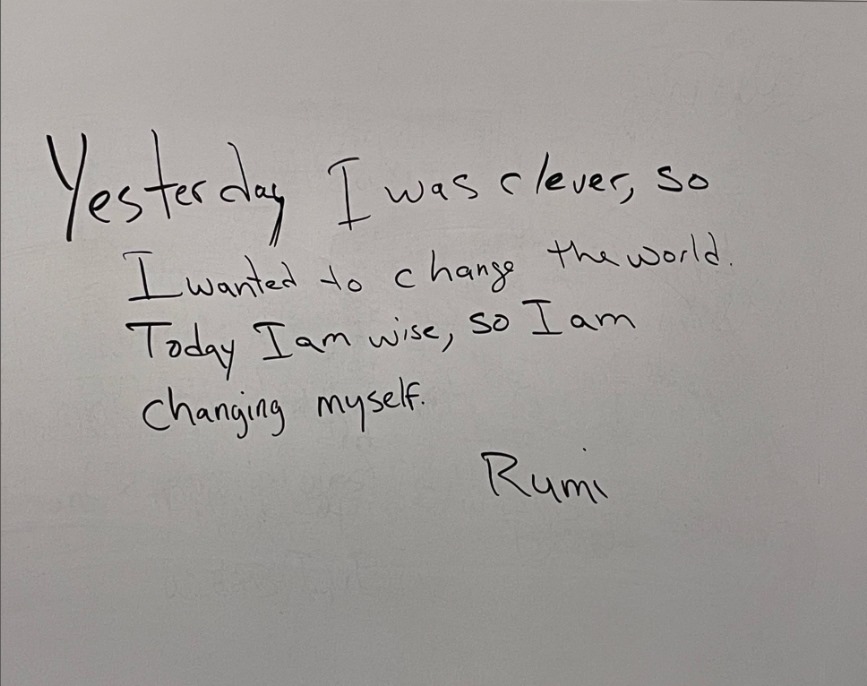 Yesterday I was clever, so
I wanted to change the world.
Today I am wise, so I am
changing myself.
Rumi